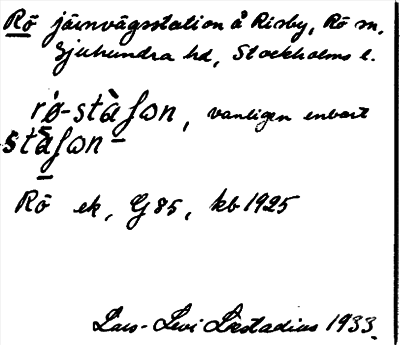 Rö järnvägsstation å Risby, Rö sn,
Sjuhundra hd, Stockholms l.
rö̀-stàʃon, vanligen enbart
stàʃon
Rö ek, G 85, kb 1925
Lars-Levi Læstadius 1933.